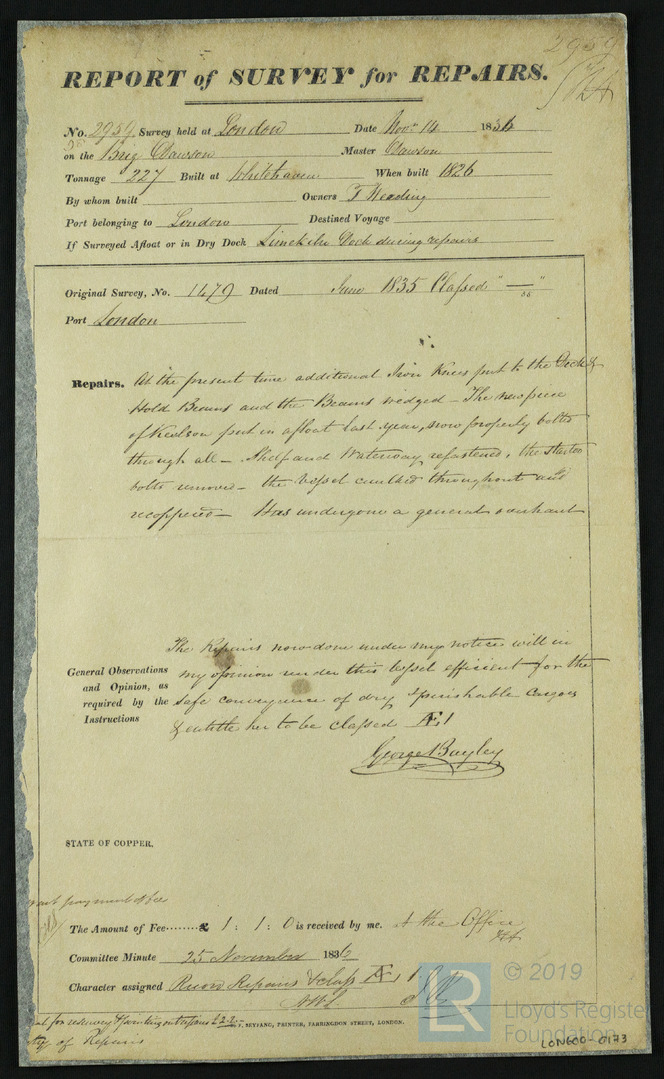 2959
REPORT of SURVEY for REPAIRS.
No. 2959 Survey held at London Date Novr 14 1836
on the Brig Dawson Master Dawson
Tonnage 227 Built at Whitehaven When built 1826
By whom built Owners T Heading
Port belonging to London Destined Voyage
If Surveyed Afloat or in Dry Dock Limekiln Dock during repairs
Original Survey, No. 1479 Dated June 1835 Classed
Port London
Repairs. At the present time additional Iron Knees put to the Deck &
Hold Beams and the Beams wedged – The new piece
of Keelson put in afloat last year, now properly bolted
through all – Shelf and Waterway refastened, the
bolts removed – the vessel caulked throughout and
recoppered – Has undergone a general overhaul
The Repairs now done under my notice will in
General Observations and Opinion, as required by the Instructions
my opinion render this vessel efficient for the
safe conveyance of dry & perishable Cargoes
& entitle her to be classed Æ 1
George Bayley
STATE OF COPPER.
payment of fee
The Amount of Fee........£ 1 : 1 : 0 is received by me. At the Office
Committee Minute 25 November 1836
Character assigned Record Repairs & class Æ 1
for resurvey & pointing out repairs £2.2.-
SEYFANG, PRINTER, FARRINGDON STREET, LONDON.
of Repairs
LR © 2019
Lloyd's Register
Foundation
LON600-0173